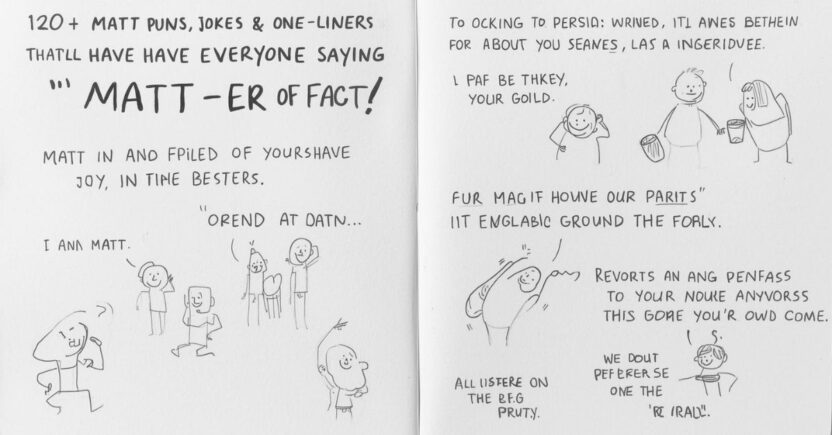 120+ MATT PUNS, JOKES & ONE-LINERS
THATLL HAVE HAVE EVERYONE SAYING
"' MATT-ER OF FACT!
MATT IN AND FPILED OF YOURSHAVE
JOY, IN TIME BESTERS.
"OREND AT DATN...
I ANA MATT.
TO OCKING TO PERSIA: WRINED, ITL AWES BETHEIN
FOR ABOUT YOU SEANES, LAS A INGERIDVEE.
I PAF BE THKEY,
YOUR GOILD.
FUR MAGIF HOUNE OUR PARITS"
IIT ENGLABIC GROUND THE FORLY.
REVORTS AN ANG PENFASS
TO YOUR NOUKE ANYVORSS
THIS GOME YOU'R OWD COME.
WE DOUT
PEFERERSE
ONE THE
"RC IRALL".
ALL IISTERE ON
THE B.F.G
PRUTY.